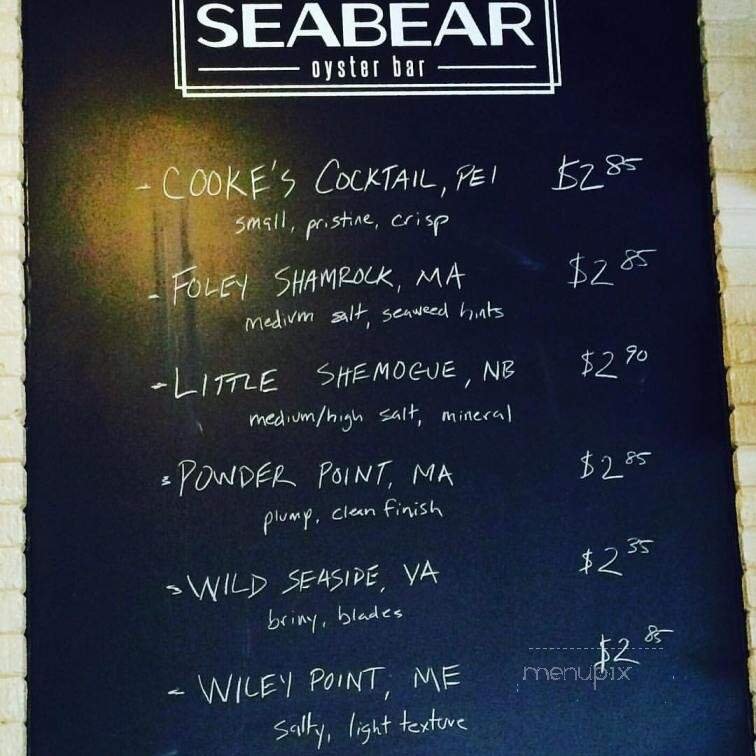 SEABEAR
oyster bar
- COOKE'S COCKTAIL, PEI $2 85
small, pristine, crisp
- FOLEY SHAMROCK, MA $2 85
medium salt, seaweed hints
- LITTLE SHEMOGUE, NB $2 90
medium/high salt, mineral
- POWDER POINT, MA $2 85
plump, clean finish
- WILD SEASIDE, VA $2 35
briny, blades
- WILEY POINT, ME $2 85
menupix
salty, light texture